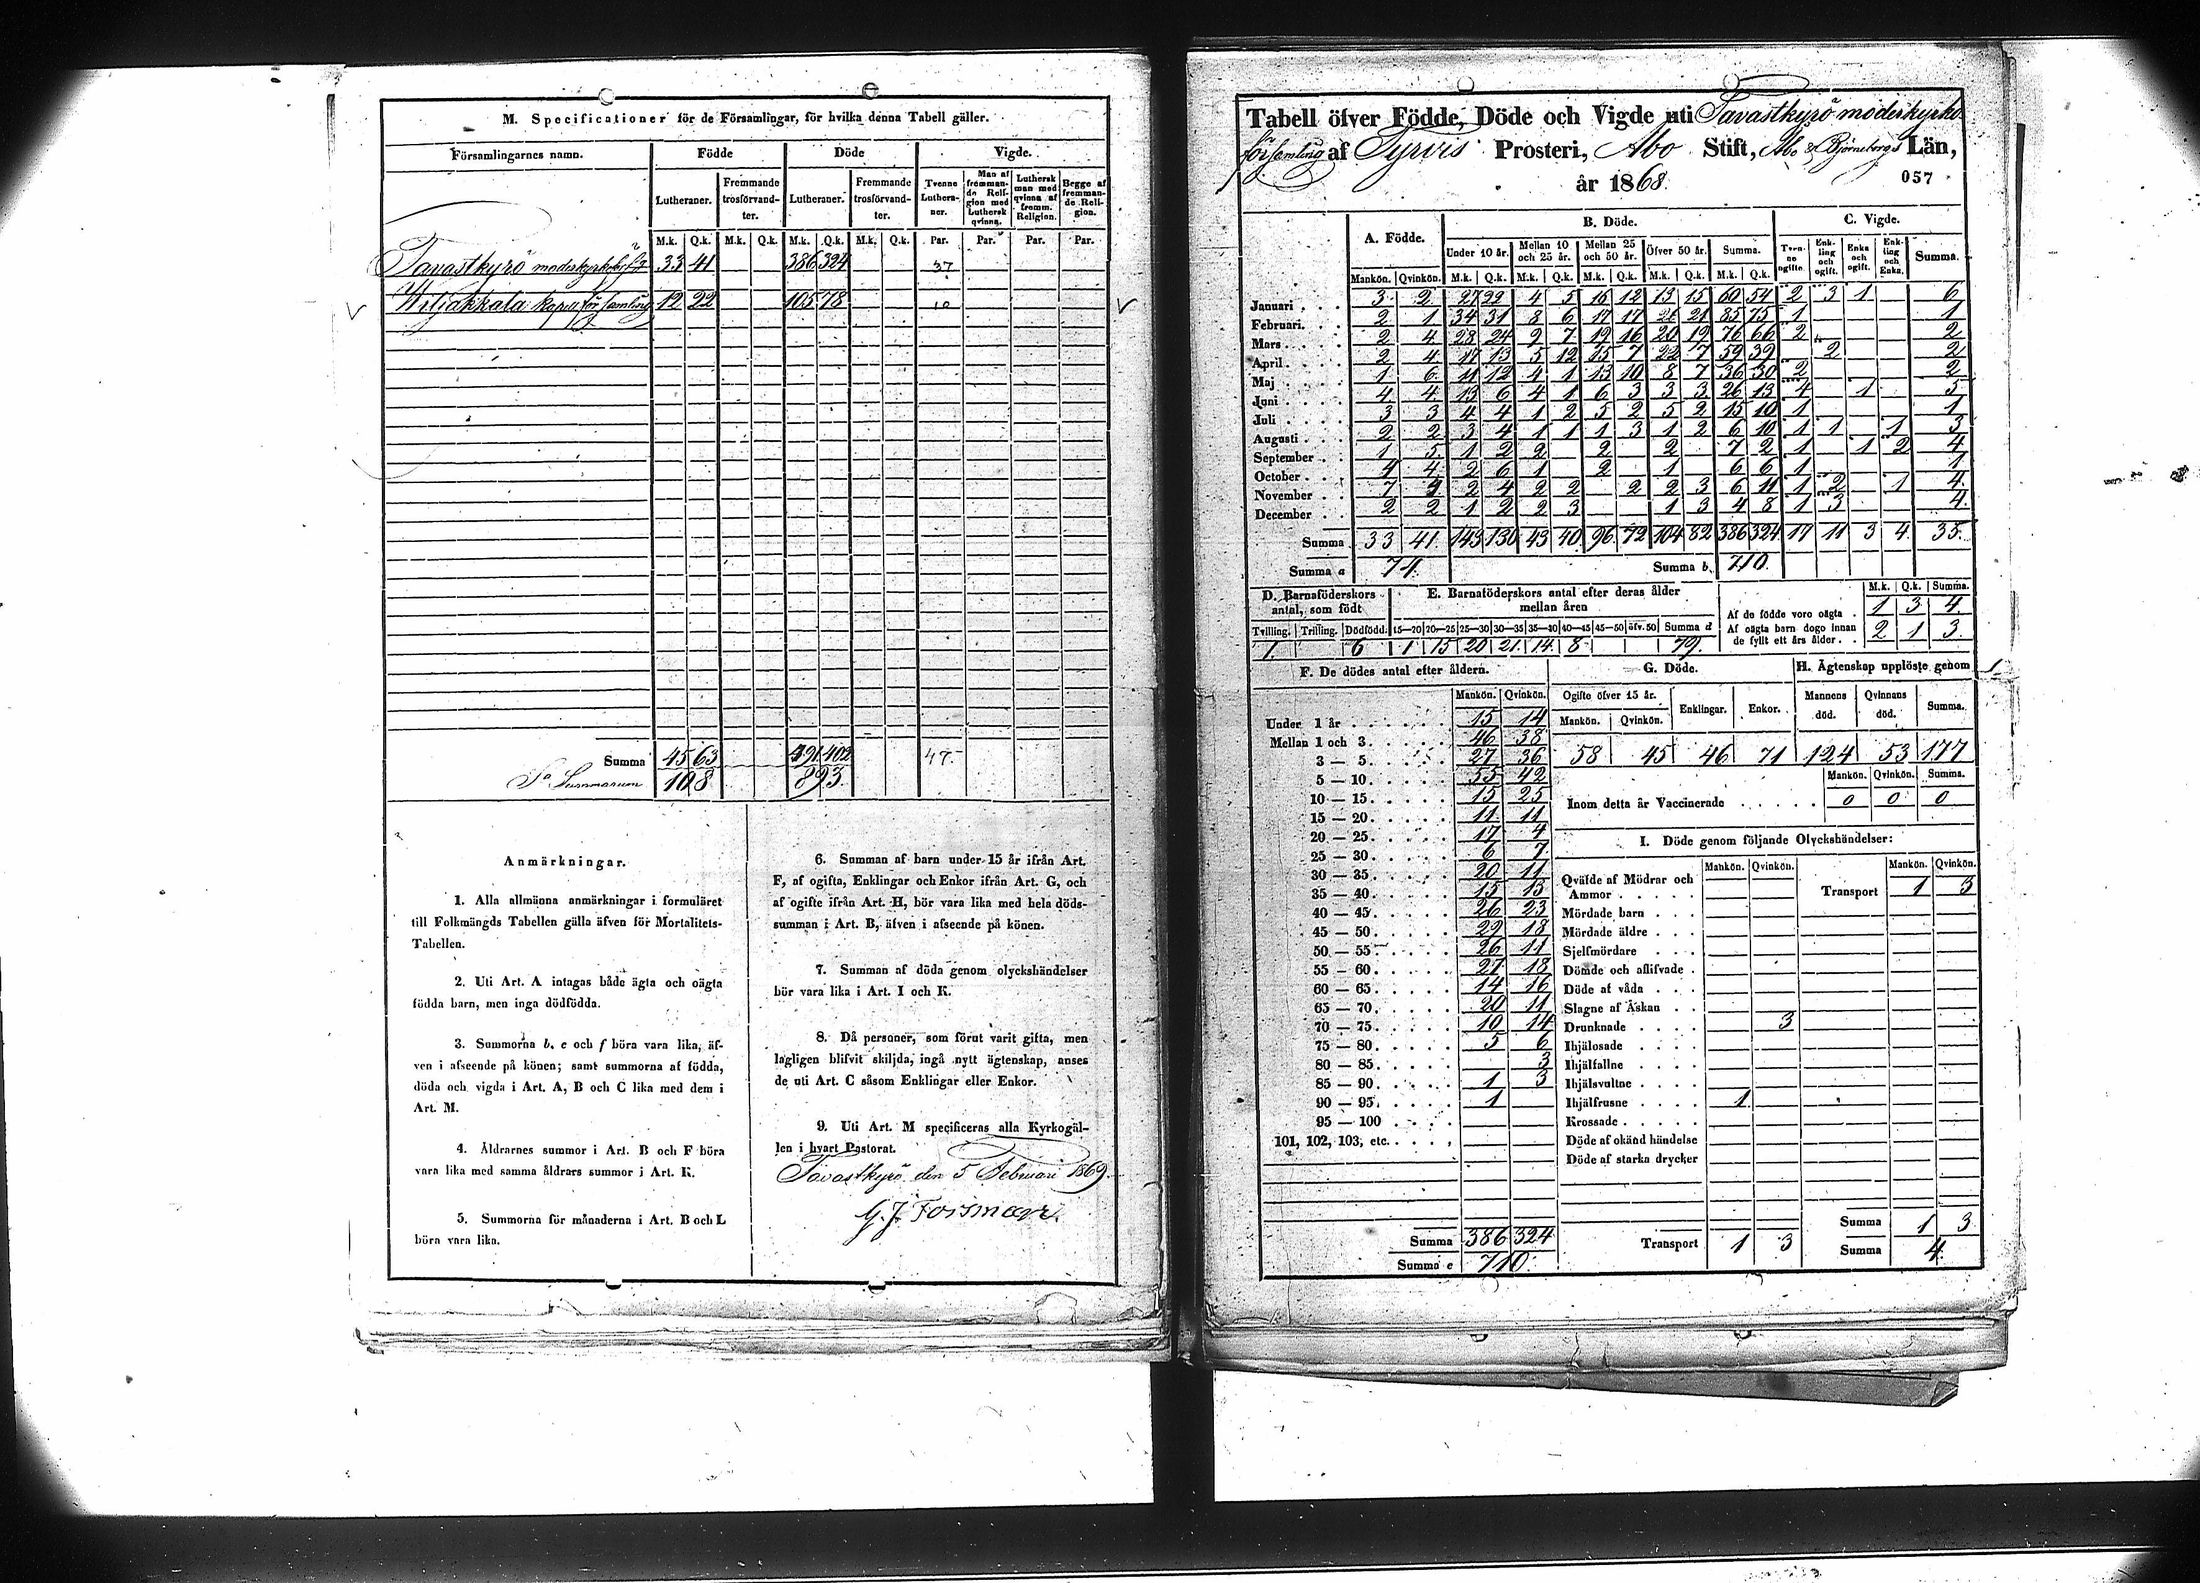 M. Specificationer för de Församlingar, för hvilka denna Tabell gäller.
Församlingarnes namn. Födde Döde Vigde.
Lutheraner. Fremmande trosförvandter. Lutheraner. Fremmande trosförvandter. Tvenne Lutheraner. Man af fremmande Religion med Luthersk qvinna. Luthersk man med qvinna af fremm. Religion. Begge af fremmande Religion.
M.k. Q.k. M.k. Q.k. M.k. Q.k. M.k. Q.k. Par. Par. Par. Par.
Tavastkyrö moderkyrkoförs:g 33 41 386 324 37
Wiljakkala kapellförsamling 12 22 105 78 10
Summa 45 63 491 402 47
Sa Summarum 108 893
Anmärkningar.
1. Alla allmänna anmärkningar i formuläret
till Folkmängds Tabellen gälla äfven för Mortalitets-
Tabellen.
2. Uti Art. A intagas både ägta och oägta
födda barn, men inga dödfödda.
3. Summorna b, e och f böra vara lika, äf-
ven i afseende på könen; samt summorna af födda,
döda och vigda i Art. A, B och C lika med dem i
Art. M.
4. Åldrarnes summor i Art. B och F böra
vara lika med samma åldrars summor i Art. K.
5. Summorna för månaderna i Art. B och L
böra vara lika.
6. Summan af barn under 15 år ifrån Art.
F, af ogifta, Enklingar och Enkor ifrån Art. G, och
af ogifte ifrån Art. H, bör vara lika med hela döds-
summan i Art. B, äfven i afseende på könen.
7. Summan af döda genom olyckshändelser
bör vara lika i Art. I och K.
8. Då personer, som förut varit gifta, men
lagligen blifvit skiljda, ingå nytt ägtenskap, anses
de uti Art. C såsom Enklingar eller Enkor.
9. Uti Art. M specificeras alla Kyrkogäl-
len i hvart Pastorat.
Tavastkyrö den 5 Februari 1869.
G. J. Forsman
Tabell öfver Födde, Döde och Vigde uti Tavastkyrö moderkyrko
församling af Tyrvis Prosteri, Åbo Stift, Åbo & Björneborgs Län,
år 1868. 057
A. Födde. B. Döde. C. Vigde.
Under 10 år. Mellan 10 och 25 år. Mellan 25 och 50 år. Öfver 50 år. Summa. Tvenne ogifte. Enkling och ogift. Enka och ogift. Enkling och Enka. Summa.
Mankön. Qvinkön. M.k. Q.k. M.k. Q.k. M.k. Q.k. M.k. Q.k. M.k. Q.k.
Januari 3 2 27 22 4 5 16 12 13 15 60 54 2 3 1 6
Februari 2 1 34 31 8 6 17 17 26 21 85 75 1 1
Mars 2 4 28 24 9 7 19 16 20 19 76 66 2 2
April 2 4 17 13 5 12 15 7 22 7 59 39 2 2
Maj 1 6 11 12 4 1 13 10 8 7 36 30 2 2
Juni 4 4 13 6 4 1 6 3 3 3 26 13 4 1 5
Juli 3 3 4 4 1 2 5 2 5 2 15 10 1 1
Augusti 2 2 3 4 1 1 1 3 1 2 6 10 1 1 1 3
September 1 5 1 2 2 2 2 7 2 1 1 2 4
October 4 4 2 6 1 2 1 6 6 1 1
November 7 4 2 4 2 2 2 2 3 6 11 1 2 1 4
December 2 2 1 2 2 3 1 3 4 8 1 3 4
Summa 33 41 143 130 43 40 96 72 104 82 386 324 17 11 3 4 35
Summa a 74 Summa b. 710
D. Barnaföderskors antal, som födt E. Barnaföderskors antal efter deras ålder mellan åren
M.k. Q.k. Summa.
Af de födde voro oägta 1 3 4
Af oägta barn dogo innan de fyllt ett års ålder 2 1 3
Tvilling. Trilling. Dödfödd. 15—20 20—25 25—30 30—35 35—40 40—45 45—50 öfv. 50 Summa d
1. 6 1 15 20 21 14 8 79.
F. De dödes antal efter åldern.
Mankön. Qvinkön.
Under 1 år 15 14
Mellan 1 och 3 46 38
3 — 5 27 36
5 — 10 55 42
10 — 15 15 25
15 — 20 11 11
20 — 25 17 4
25 — 30 6 7
30 — 35 20 11
35 — 40 15 13
40 — 45 26 23
45 — 50 29 18
50 — 55 26 11
55 — 60 27 18
60 — 65 14 16
65 — 70 20 11
70 — 75 10 14
75 — 80 5 6
80 — 85 3
85 — 90 1 3
90 — 95 1
95 — 100
101, 102, 103, etc.
Summa 386 324
Summa e 710
G. Döde. H. Ägtenskap upplöste genom
Ogifte öfver 15 år. Enklingar. Enkor. Mannens död. Qvinnans död. Summa.
Mankön. Qvinkön.
58 45 46 71 124 53 177
Mankön. Qvinkön. Summa.
Inom detta år Vaccinerade 0 0 0
I. Döde genom följande Olyckshändelser:
Mankön. Qvinkön. Mankön. Qvinkön.
Qväfde af Mödrar och Ammor Transport 1 3
Mördade barn
Mördade äldre
Sjelfmördare
Dömde och aflifvade
Döde af våda
Slagne af Åskan
Drunknade 3
Ihjälosade
Ihjälfallne
Ihjälsvultne
Ihjälfrusne 1
Krossade
Döde af okänd händelse
Döde af starka drycker
Transport 1 3
Summa 1 3
Summa 4